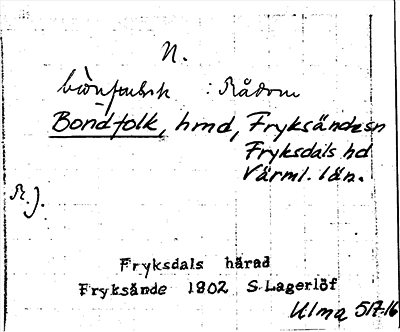 N.
: Rådom
Bondfolk, hmd, Fryksände sn
Fryksdals hd
Värml. län.
R.J.
Fryksdals härad
Fryksände 1802 S. Lagerlöf
Ulma 517:16